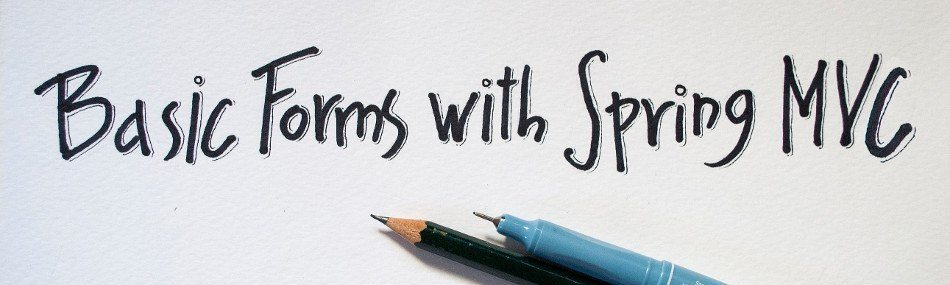 Basic Forms with Spring MVC